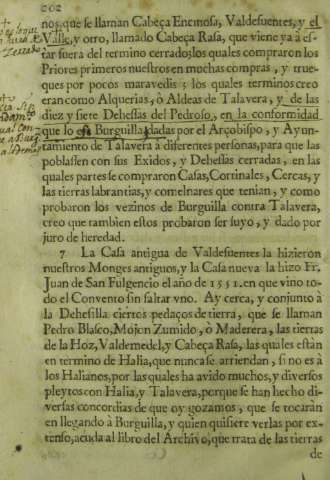 202
nos, que se llaman Cabeça Encinosa, Valdefuentes, y el
Valle, y otro, llamado Cabeça Rasa, que viene ya à es-
tar fuera del termino cerrado; los quales compraron los
Priores primeros nuestros en muchas compras, y true-
ques por pocos maravedis; los quales terminos creo
eran como Alquerias, ò Aldeas de Talavera, y de las
diez y siete Dehessas del Pedroso, en la conformidad
que lo es Burguilla, dadas por el Arçobispo, y Ayun-
tamiento de Talavera à diferentes personas, para que las
poblassen con sus Exidos, y Dehessas cerradas, en las
quales partes se compraron Casas, Cortinales, Cercas, y
las tierras labrantias, y comelnares que tenian, y como
probaron los vezinos de Burguilla contra Talavera,
creo que tambien estos probaron ser suyo, y dado por
juro de heredad.
7 La Casa antigua de Valdefuentes la hizieron
nuestros Monges antiguos, y la Casa nueva la hizo Fr.
Juan de San Fulgencio el año de 1551. en que vino to-
do el Convento sin faltar vno. Ay cerca, y conjunto à
la Dehesilla ciertos pedaços de tierra, que se llaman
Pedro Blasco, Mojon Zumido, ò Maderera, las tierras
de la Hoz, Valdemedel, y Cabeça Rasa, las quales estàn
en termino de Halia, que nunca se arriendan, si no es à
los Halianos, por las quales ha avido muchos, y diversos
pleytos con Halia, y Talavera, porque se han hecho di-
versas concordias de que oy gozamos, que se tocaràn
en llegando à Burguilla, y quien quisiere verlas por ex-
tenso, acuda al libro del Archivo, que trata de las tierras
de